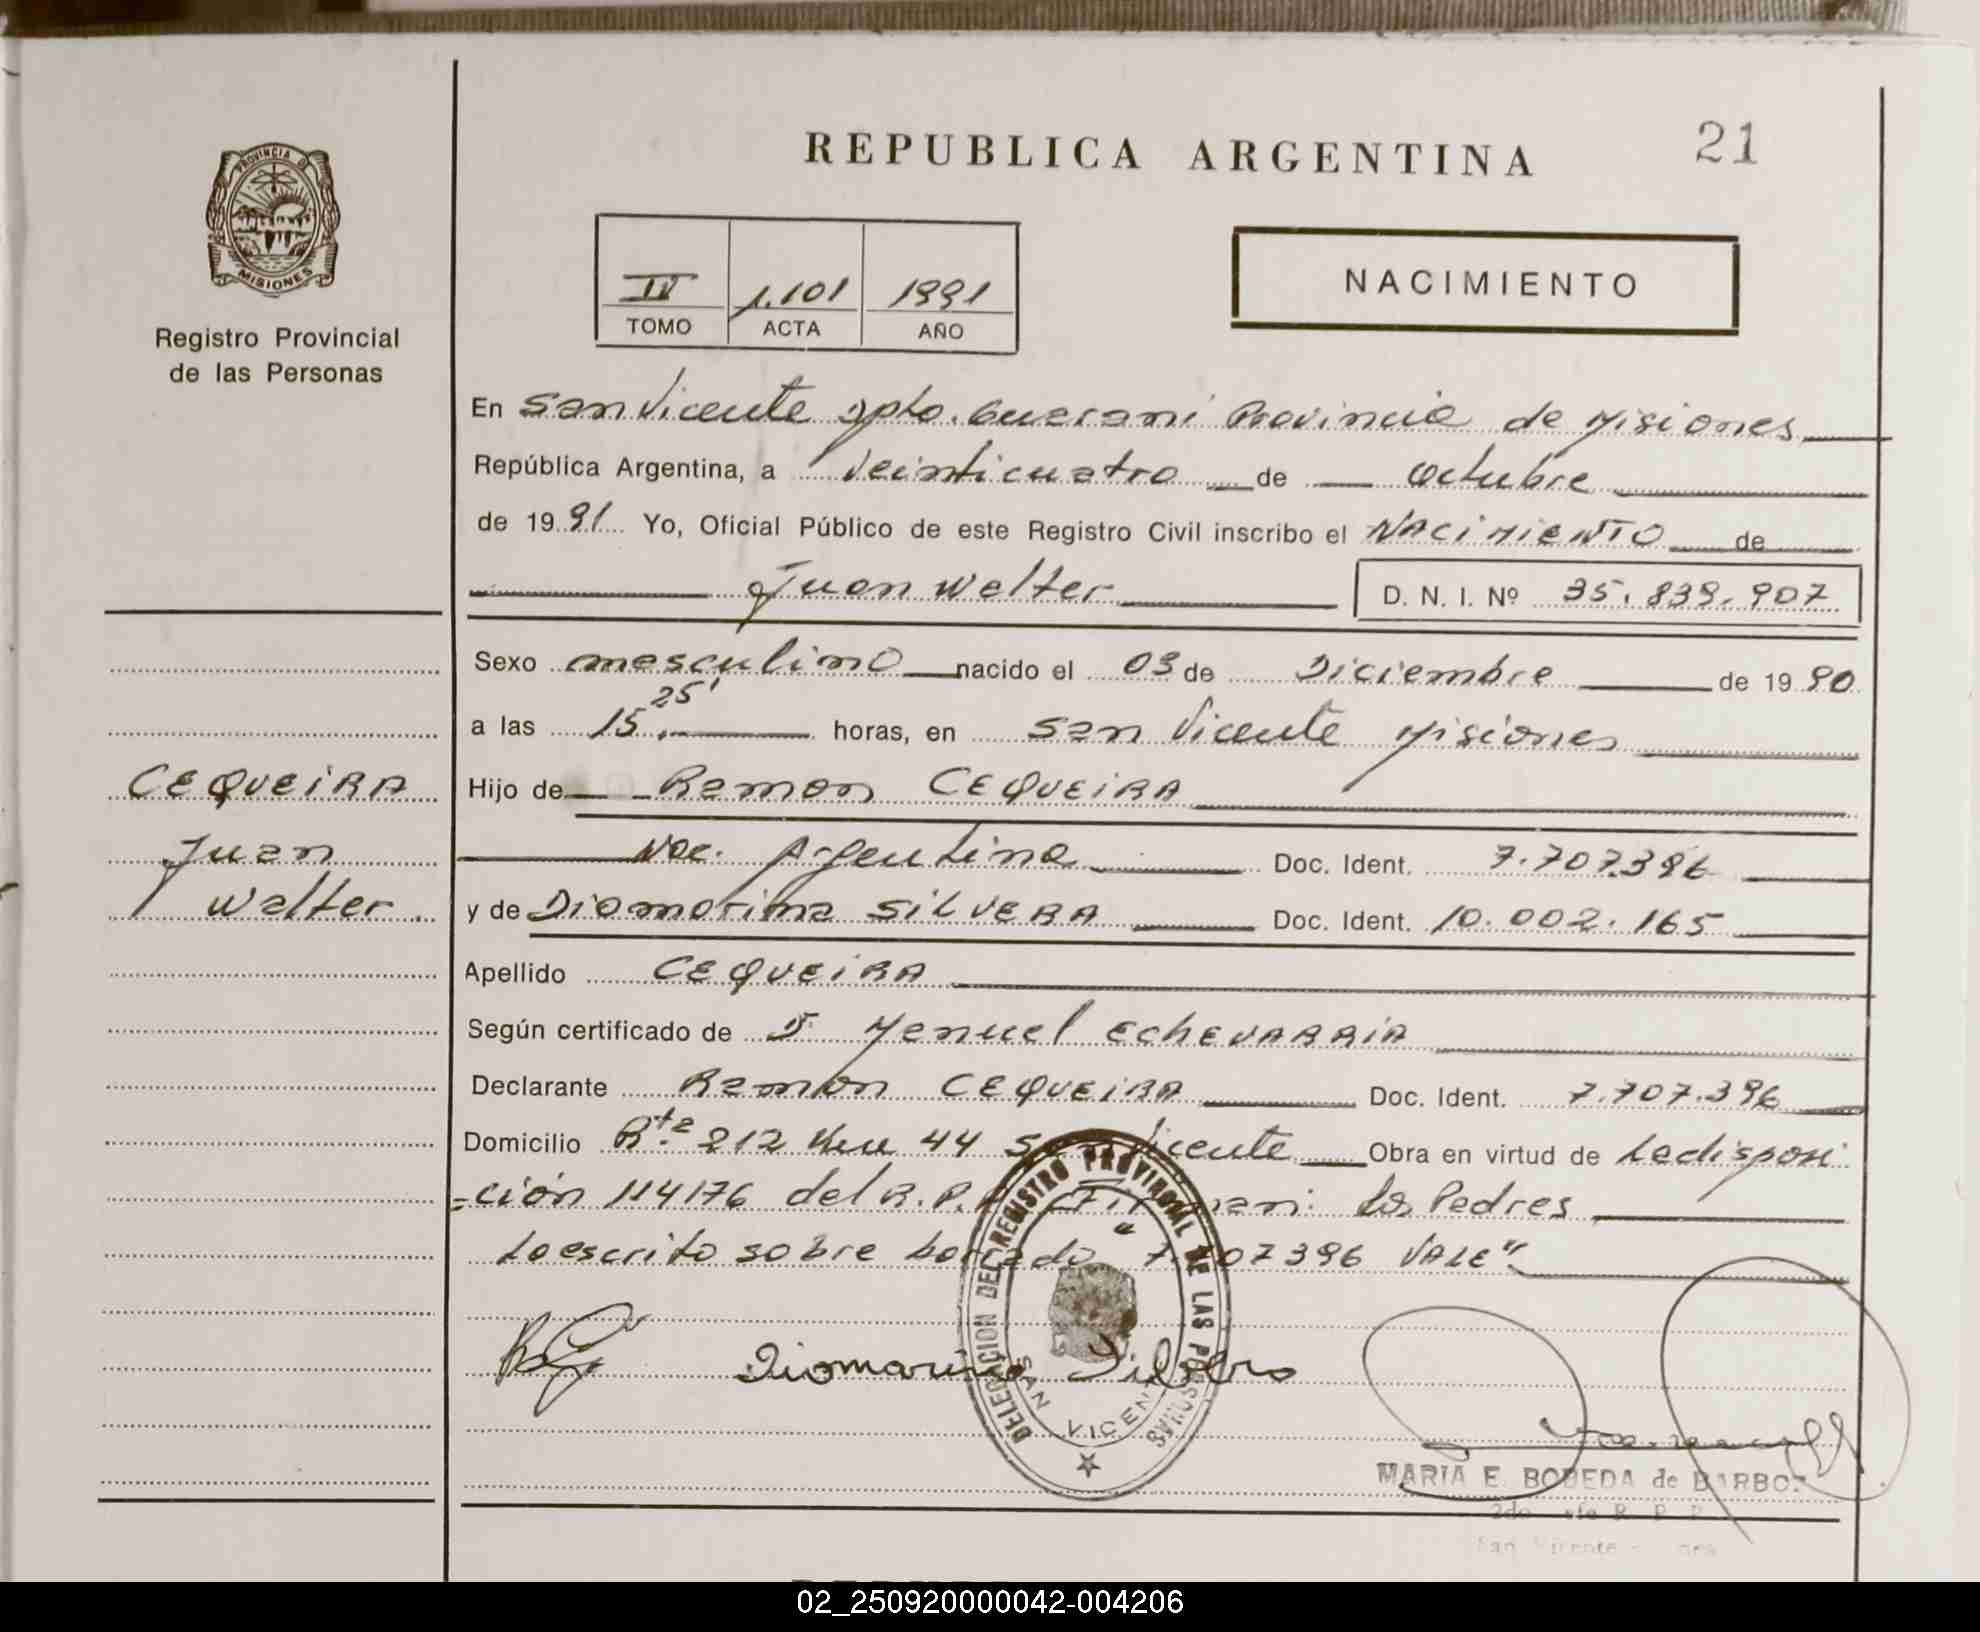 REPUBLICA ARGENTINA
21
PROVINCIA D
MISIONES
Registro Provincial
de las Personas
IV 1.101 1991
TOMO ACTA AÑO
NACIMIENTO
En San Vicente Dpto. Guarani Provincia de Misiones
República Argentina, a Veinticuatro de octubre
de 1991 Yo, Oficial Público de este Registro Civil inscribo el NACIMIENTO de
Juan Walter D. N. I. Nº 35.839.907
Sexo masculino nacido el 03 de Diciembre de 1990
a las 15 25' horas, en San Vicente Misiones
Hijo de Ramon CEQUEIRA
Nac. Argentina Doc. Ident. 7.707.396
y de Diomarina SILVERA Doc. Ident. 10.002.165
Apellido CEQUEIRA
Según certificado de Manuel EchEVARRIA
Declarante Ramon CEQUEIRA Doc. Ident. 7.707.396
Domicilio Rta. 212 Km 44 San Vicente Obra en virtud de La disposi
=ción 114176 del R.P. los Padres
Lo escrito sobre borrado "7.707396 VALE"
CEQUEIRA
Juan
Walter.
Diomarina Silvera
DELEGACION DEL REGISTRO PROVINCIAL DE LAS PERSONAS
SAN VICENTE
MARIA E. BOBEDA de BARBOZ
San Vicente
02_250920000042-004206